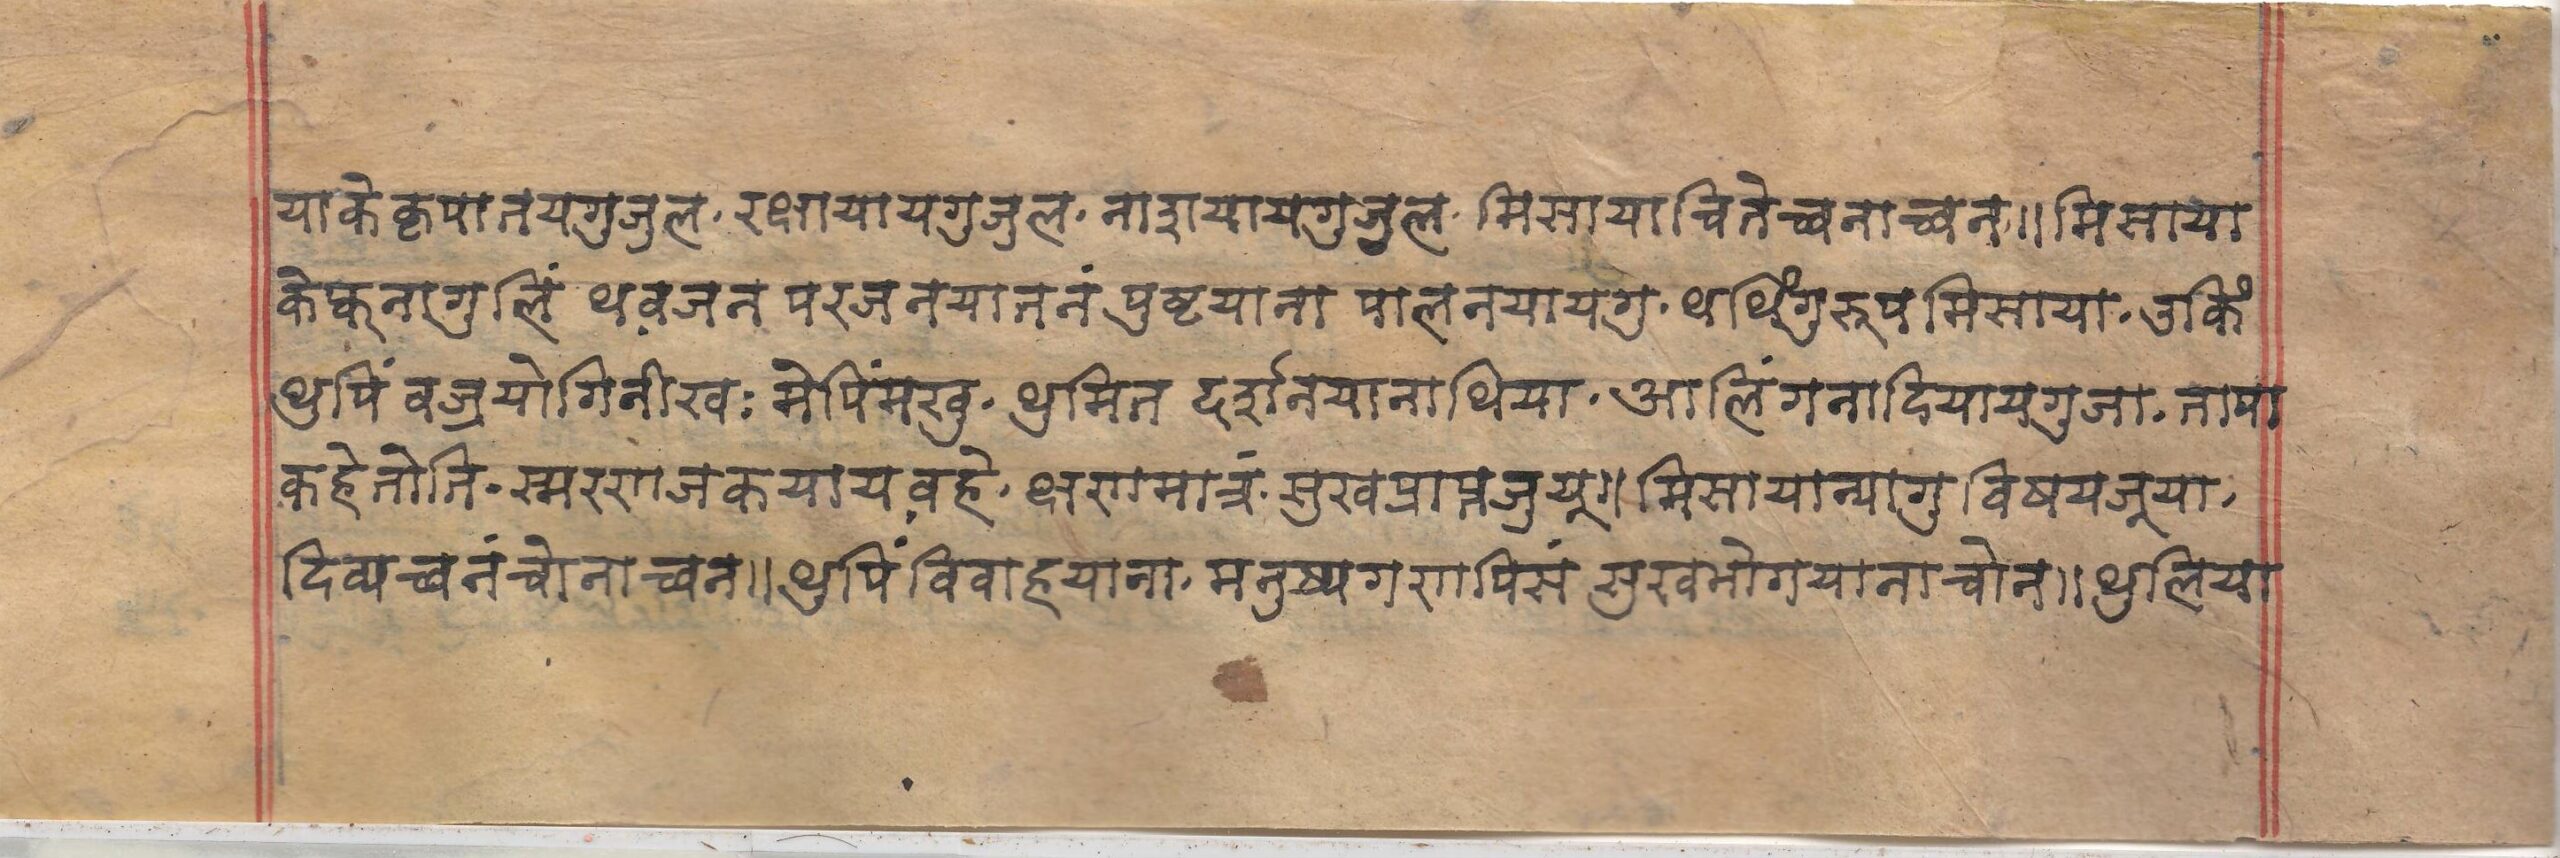 याके कृपातयगुजुल, रक्षायायगुजुल, नाशयायगुजुल, मिसायाचितेच्वनाच्वन॥ मिसाया
केफुनागुलिं थवजन परजनयातनं पुष्टयाना पालनयायगु, थथिंगुरूपमिसाया, उकिं
थुपिं वज्रयोगिनीखः मेपिंमखु, थुमित दर्शनयानाथिया, आलिंगनादियायगुजा, तापा
कहेतोति, स्मरणजकयायवहे, क्षणमात्रं, सुखप्राप्तजुयू॥ मिसायान्यागु विषयजूया,
दिव्यच्वनंचोनाच्वन॥ थुपिं विवाहयाना, मनुष्यगणपिसं सुखभोगयानाचोन॥ थुलिया